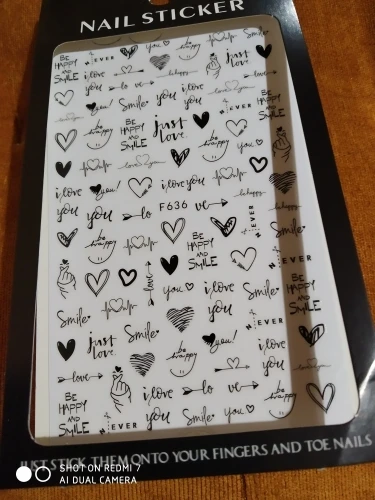 NAIL STICKER
BE HAPPY AND SMILE
EVER
you
Smile
just
love
i love
you
lo ve
be happy
i love
you
Smile
you
i love
you
EVER
BE
HAPPY
AND
SMILE
just
love
be happy
you
love
i love
you
you!
i love you
you
lo
F636
ve
be happy
EVER
be happy
BE
HAPPY
AND
SMILE
Smile
EVER
love
you
i love
you
Smile
BE
HAPPY
AND
SMILE
Smile
just
love
Smile
be happy
you!
EVER
i love
you
love
BE
HAPPY
AND
SMILE
EVER
i love
you
lo
ve
Smile
you
be happy
JUST STICK THEM ONTO YOUR FINGERS AND TOE NAILS
SHOT ON REDMI 7
AI DUAL CAMERA